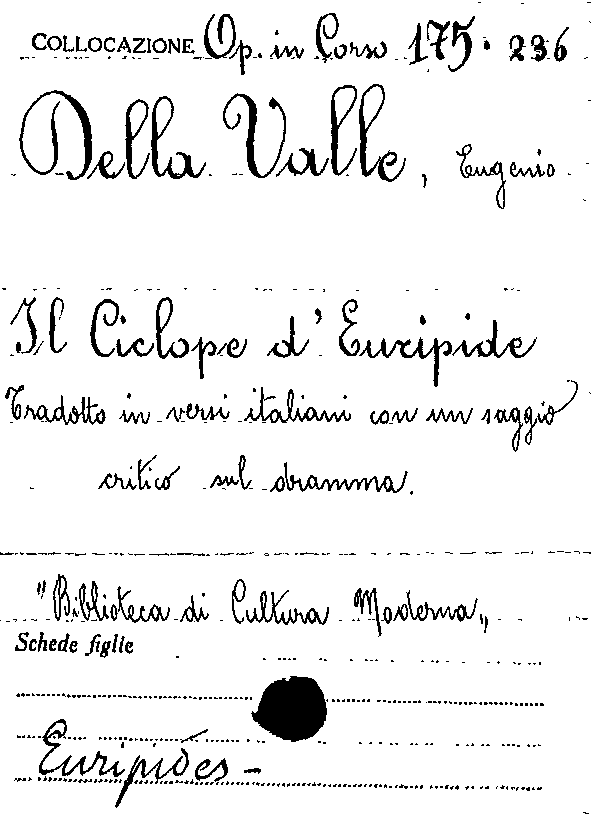 COLLOCAZIONE Op. in Corso 175. 236
Della Valle, Eugenio
Il Ciclope d'Euripide
Tradotto in versi italiani con un saggio
critico sul dramma.
"Biblioteca di Cultura Moderna„
Schede figlie
Euripides -